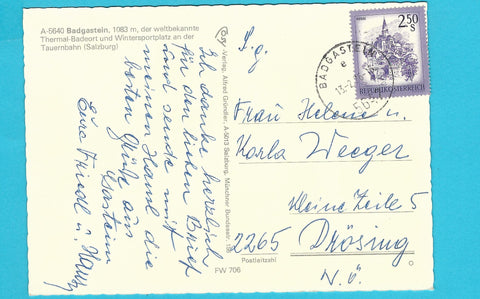 A-5640 Badgastein, 1083 m, der weltbekannte
Thermal-Badeort und Wintersportplatz an der
Tauernbahn (Salzburg)
Ich danke herzlich
für den lieben Brief
und sende mit
meinem Hansl die
besten Grüße aus
Gastein
Eure Friedl u. Hansl
-Verlag Alfred Gründler, A-5013 Salzburg, Münchner Bundesstr.
S.g.
Frau Helene u.
Karla Weeger
Kleine Zeile 5
2265 Drösing
N.Ö.
Postleitzahl
FW 706
2.50
S
REPUBLIK ÖSTERREICH
BADGASTEIN